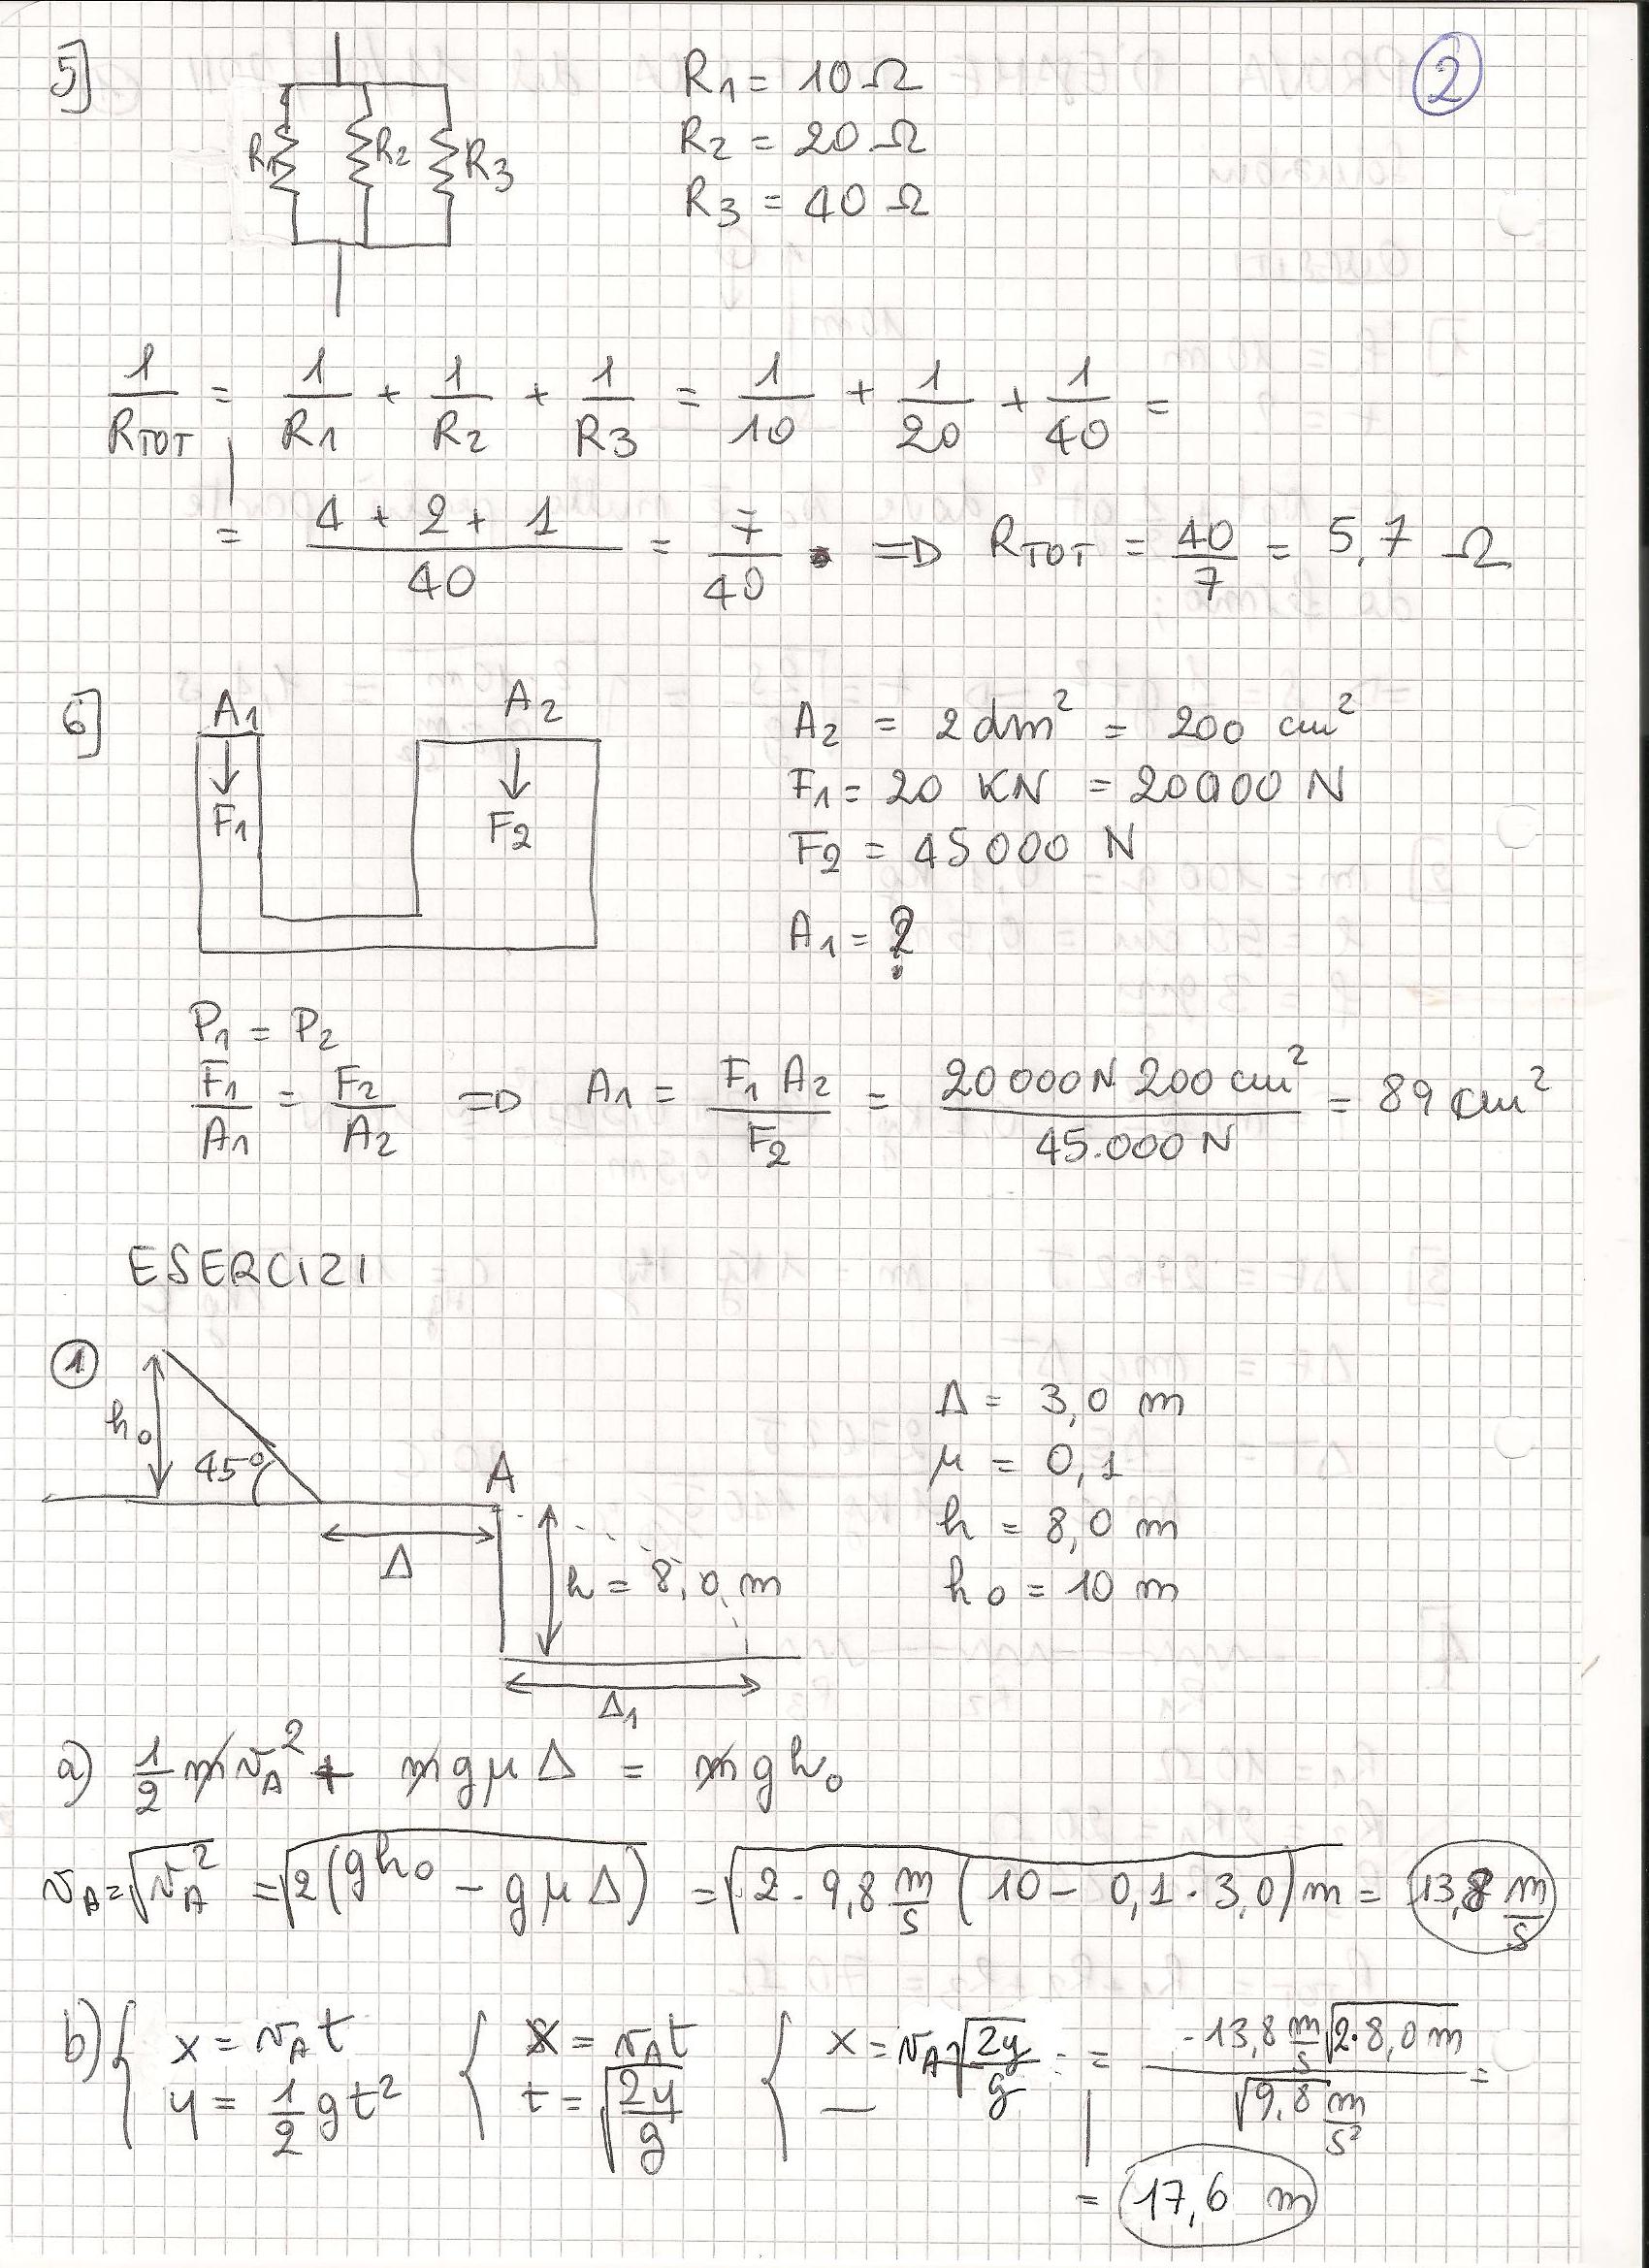 2
5]
R1 R2 R3
R1 = 10 Ω
R2 = 20 Ω
R3 = 40 Ω
1/RTOT = 1/R1 + 1/R2 + 1/R3 = 1/10 + 1/20 + 1/40 =
= (4 + 2 + 1)/40 = 7/40 => RTOT = 40/7 = 5,7 Ω
6]
A1 A2
F1 F2
A2 = 2 dm² = 200 cm²
F1 = 20 KN = 20000 N
F2 = 45000 N
A1 = ?
P1 = P2
F1/A1 = F2/A2 => A1 = F1 A2/F2 = 20000 N 200 cm²/45.000 N = 89 cm²
ESERCIZI
1
h0 45° A
Δ
h = 8,0 m
Δ1
Δ = 3,0 m
μ = 0,1
h = 8,0 m
h0 = 10 m
a) 1/2 m vA² + m g μ Δ = m g h0
vA = √vA² = √2(gh0 - gμΔ) = √2 · 9,8 m/s (10 - 0,1 · 3,0) m = 13,8 m/s
b) { x = vA t { x = vA t { x = vA √2y/g = = -13,8 m/s √2·8,0 m / √9,8 m/s² =
y = 1/2 g t² t = √2y/g —
= 17,6 m